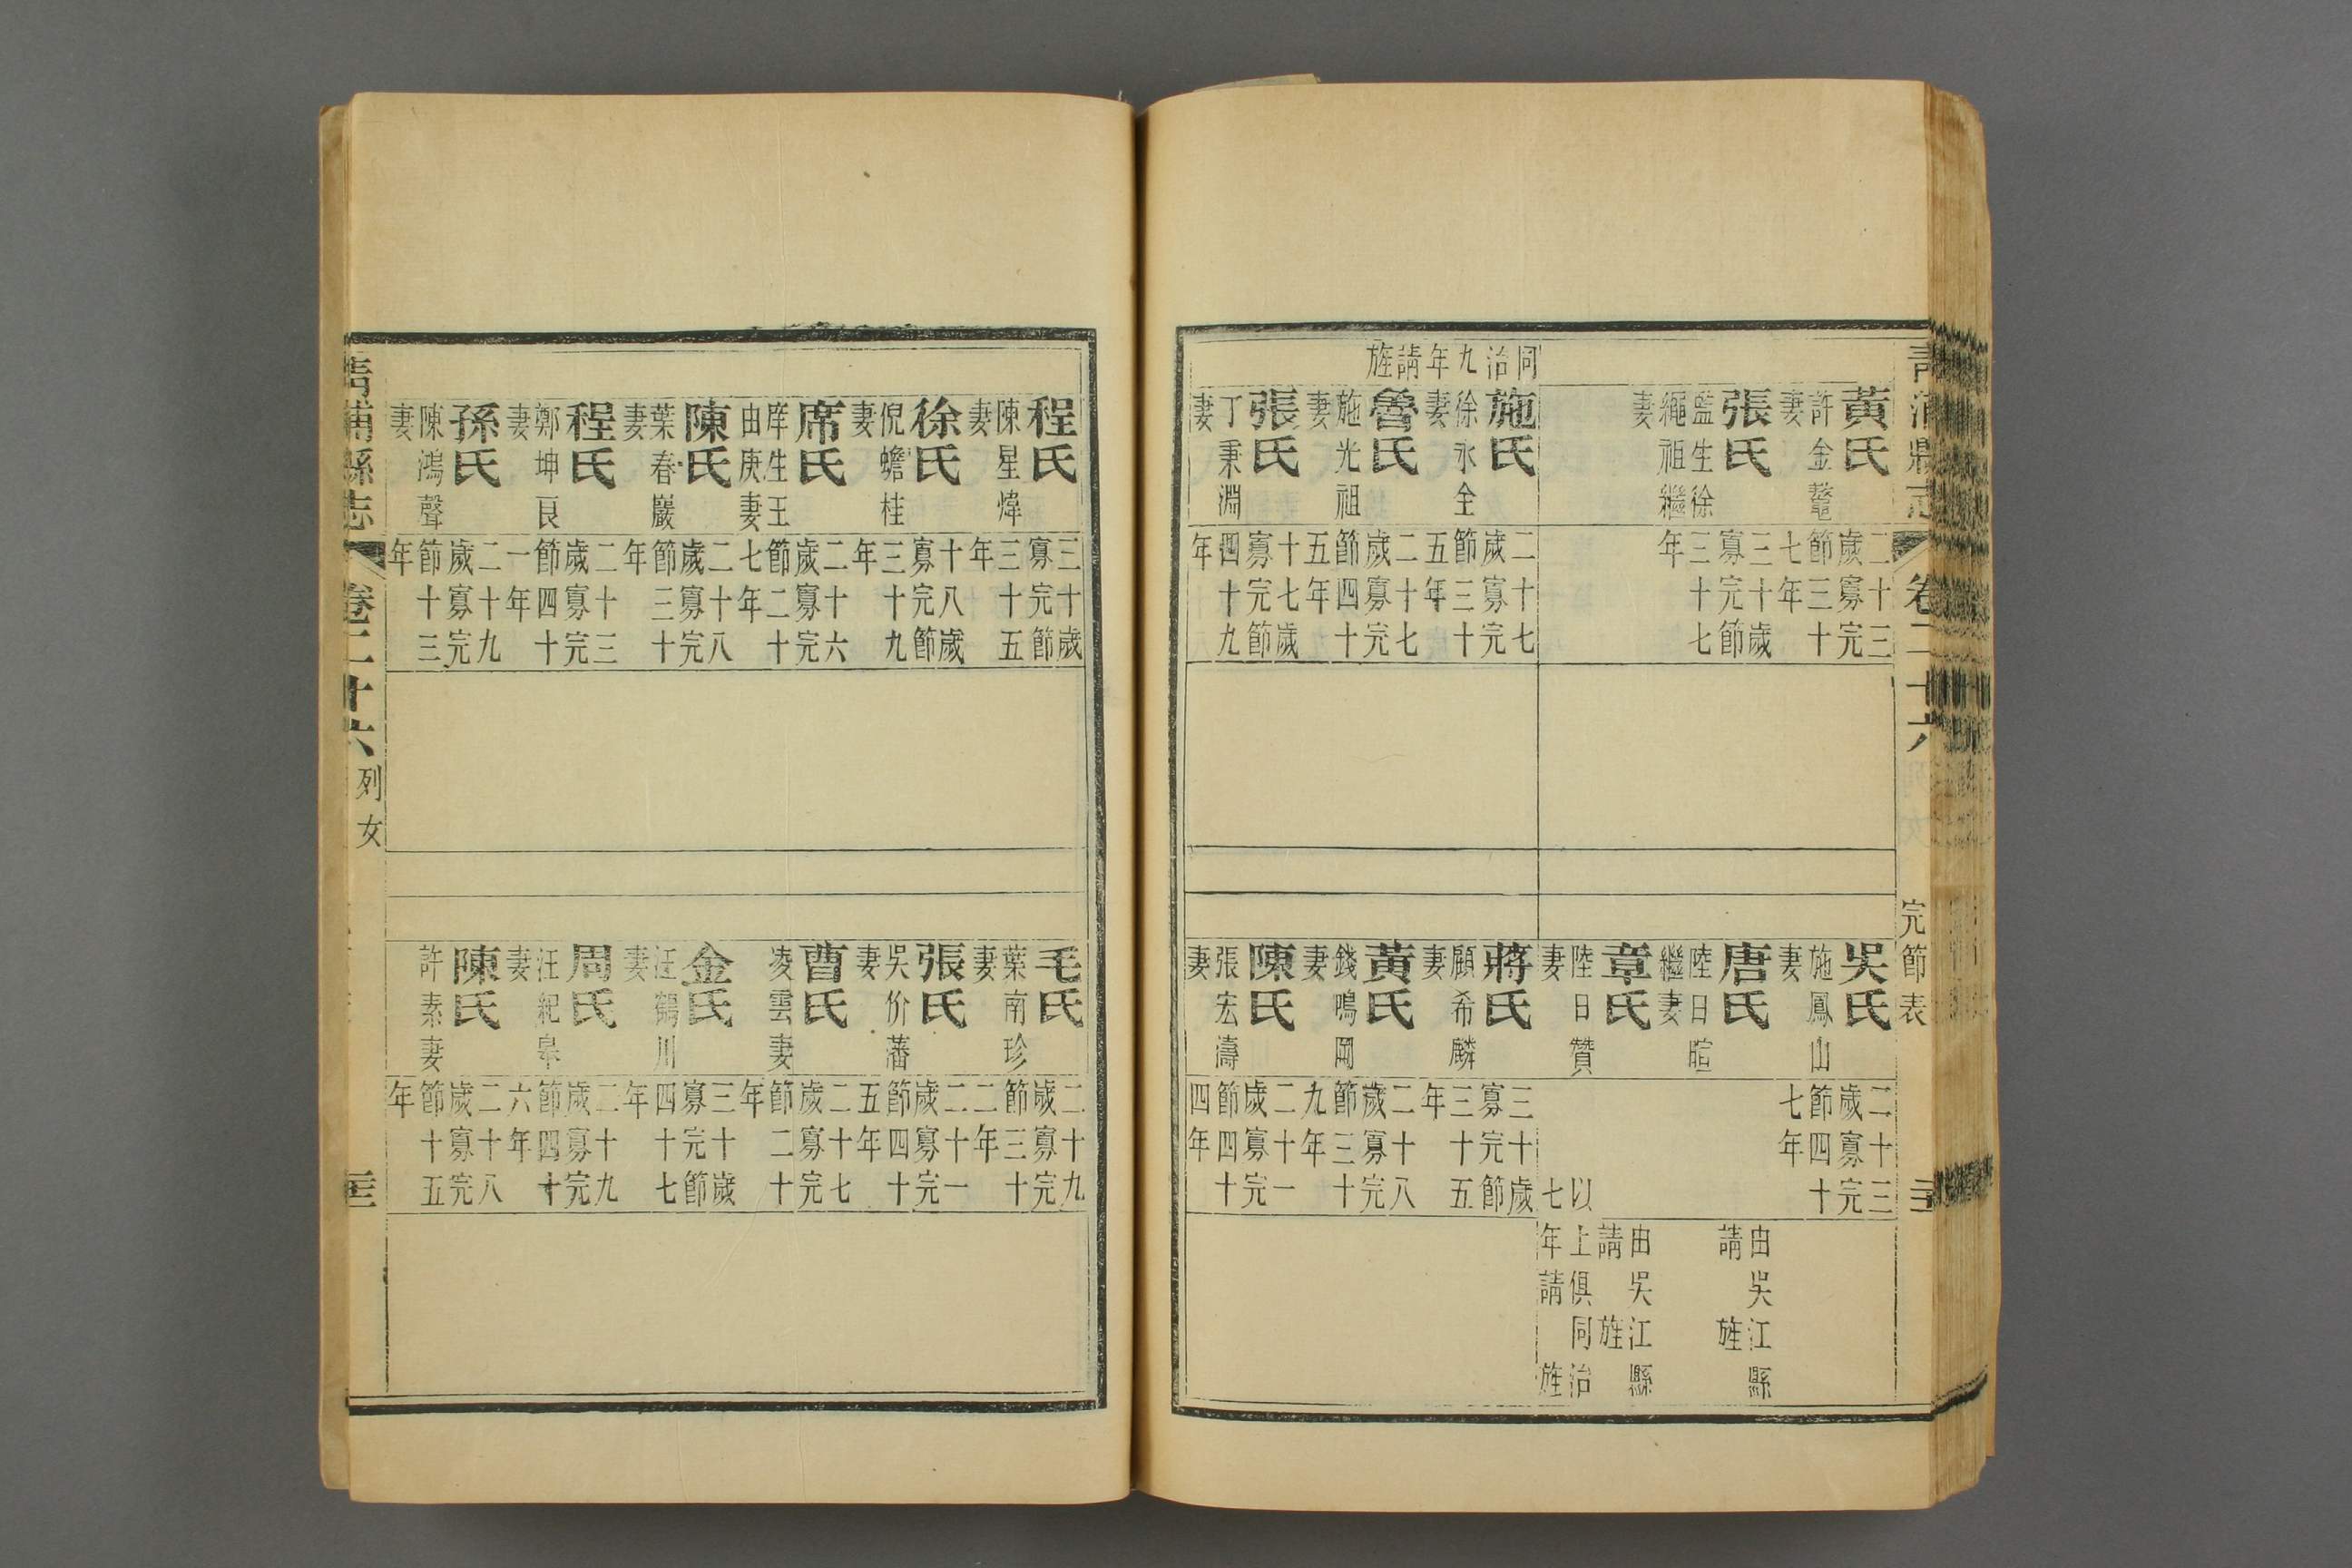 卷二十六
完節表
黃氏
許金鼇
妻
二十三
歲寡完
節三十
七年
張氏
監生徐
繩祖繼
妻
三十歲
寡完節
三十七
年
同治九年請旌
施氏
徐永全
妻
二十七
歲寡完
節三十
五年
魯氏
施光祖
妻
二十七
歲寡完
節四十
五年
張氏
丁秉淵
妻
十七歲
寡完節
四十九
年
吳氏
施鳳山
妻
二十三
歲寡完
節四十
七年
唐氏
陸日暄
繼妻
由吳江縣
請旌
章氏
陸日贊
妻
由吳江縣
請旌
以上俱同治
七年請旌
蔣氏
顧希麟
妻
三十歲
寡完節
三十五
年
黃氏
錢鳴岡
妻
二十八
歲寡完
節三十
九年
陳氏
張宏濤
妻
二十一
歲寡完
節四十
四年
程氏
陳星煒
妻
三十歲
寡完節
三十五
年
徐氏
倪蟾桂
妻
十八歲
寡完節
三十九
年
席氏
庠生王
由庚妻
二十六
歲寡完
節二十
七年
陳氏
葉春巖
妻
二十八
歲寡完
節三十
年
程氏
鄭坤良
妻
二十三
歲寡完
節四十
一年
孫氏
陳鴻聲
妻
二十九
歲寡完
節十三
年
毛氏
葉南珍
妻
二十九
歲寡完
節三十
二年
張氏
吳价藩
妻
二十一
歲寡完
節四十
五年
曹氏
凌雲妻
二十七
歲寡完
節二十
年
金氏
汪鶴川
妻
三十歲
寡完節
四十七
年
周氏
汪紀皋
妻
二十九
歲寡完
節四十
六年
陳氏
許素妻
二十八
歲寡完
節十五
年
青浦縣志
卷二十六
列女